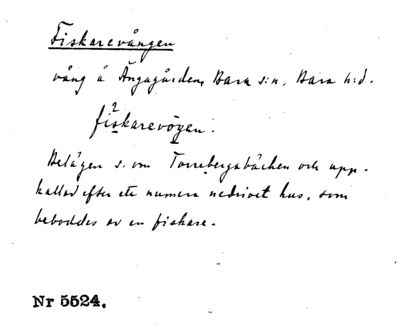 Fiskarevången
vång å Ängagården, Bara s:n, Bara h:d.
fiskarevǫŋen.
Belägen s. om Torrebergabäcken och upp-
kallad efter ett numera nedrivet hus, som
beboddes av en fiskare.
Nr 5524.